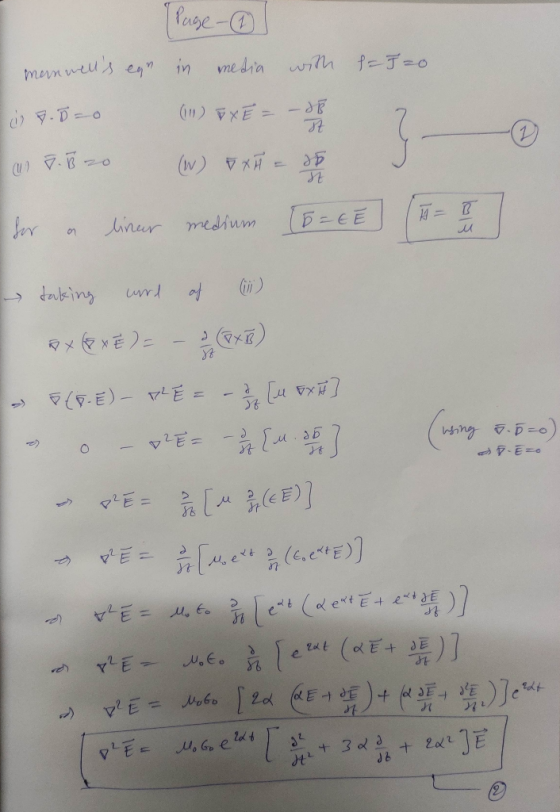 Page - ①
maxwell's eqⁿ in media with ρ = J̄ = 0
(i) ∇·D̄ = 0 (iii) ∇×Ē = -∂B̄/∂t
(ii) ∇̄·B̄ = 0 (iv) ∇×H̄ = ∂D̄/∂t
} — ①
for a linear medium D̄ = ϵĒ H̄ = B̄/μ
→ taking curl of (iii)
∇×(∇̄×Ē) = - ∂/∂t (∇̄×B̄)
⇒ ∇̄(∇̄·Ē) - ∇²Ē = - ∂/∂t [μ ∇×H̄]
⇒ 0 - ∇²Ē = - ∂/∂t [μ · ∂D̄/∂t] (using ∇̄·D̄ = 0)
⇒ ∇·Ē = 0
⇒ ∇²Ē = ∂/∂t [μ ∂/∂t (ϵĒ)]
⇒ ∇²Ē = ∂/∂t [μ₀e^{αt} ∂/∂t (ϵ₀e^{αt}Ē)]
⇒ ∇²Ē = μ₀ϵ₀ ∂/∂t [e^{αt} (αe^{αt}Ē + e^{αt} ∂Ē/∂t)]
⇒ ∇²Ē = μ₀ϵ₀ ∂/∂t [e^{2αt} (αĒ + ∂Ē/∂t)]
⇒ ∇²Ē = μ₀ϵ₀ [2α (αĒ + ∂Ē/∂t) + (α ∂Ē/∂t + ∂²Ē/∂t²)] e^{2αt}
∇²Ē = μ₀ϵ₀ e^{2αt} [∂²/∂t² + 3α ∂/∂t + 2α²] Ē
— ②